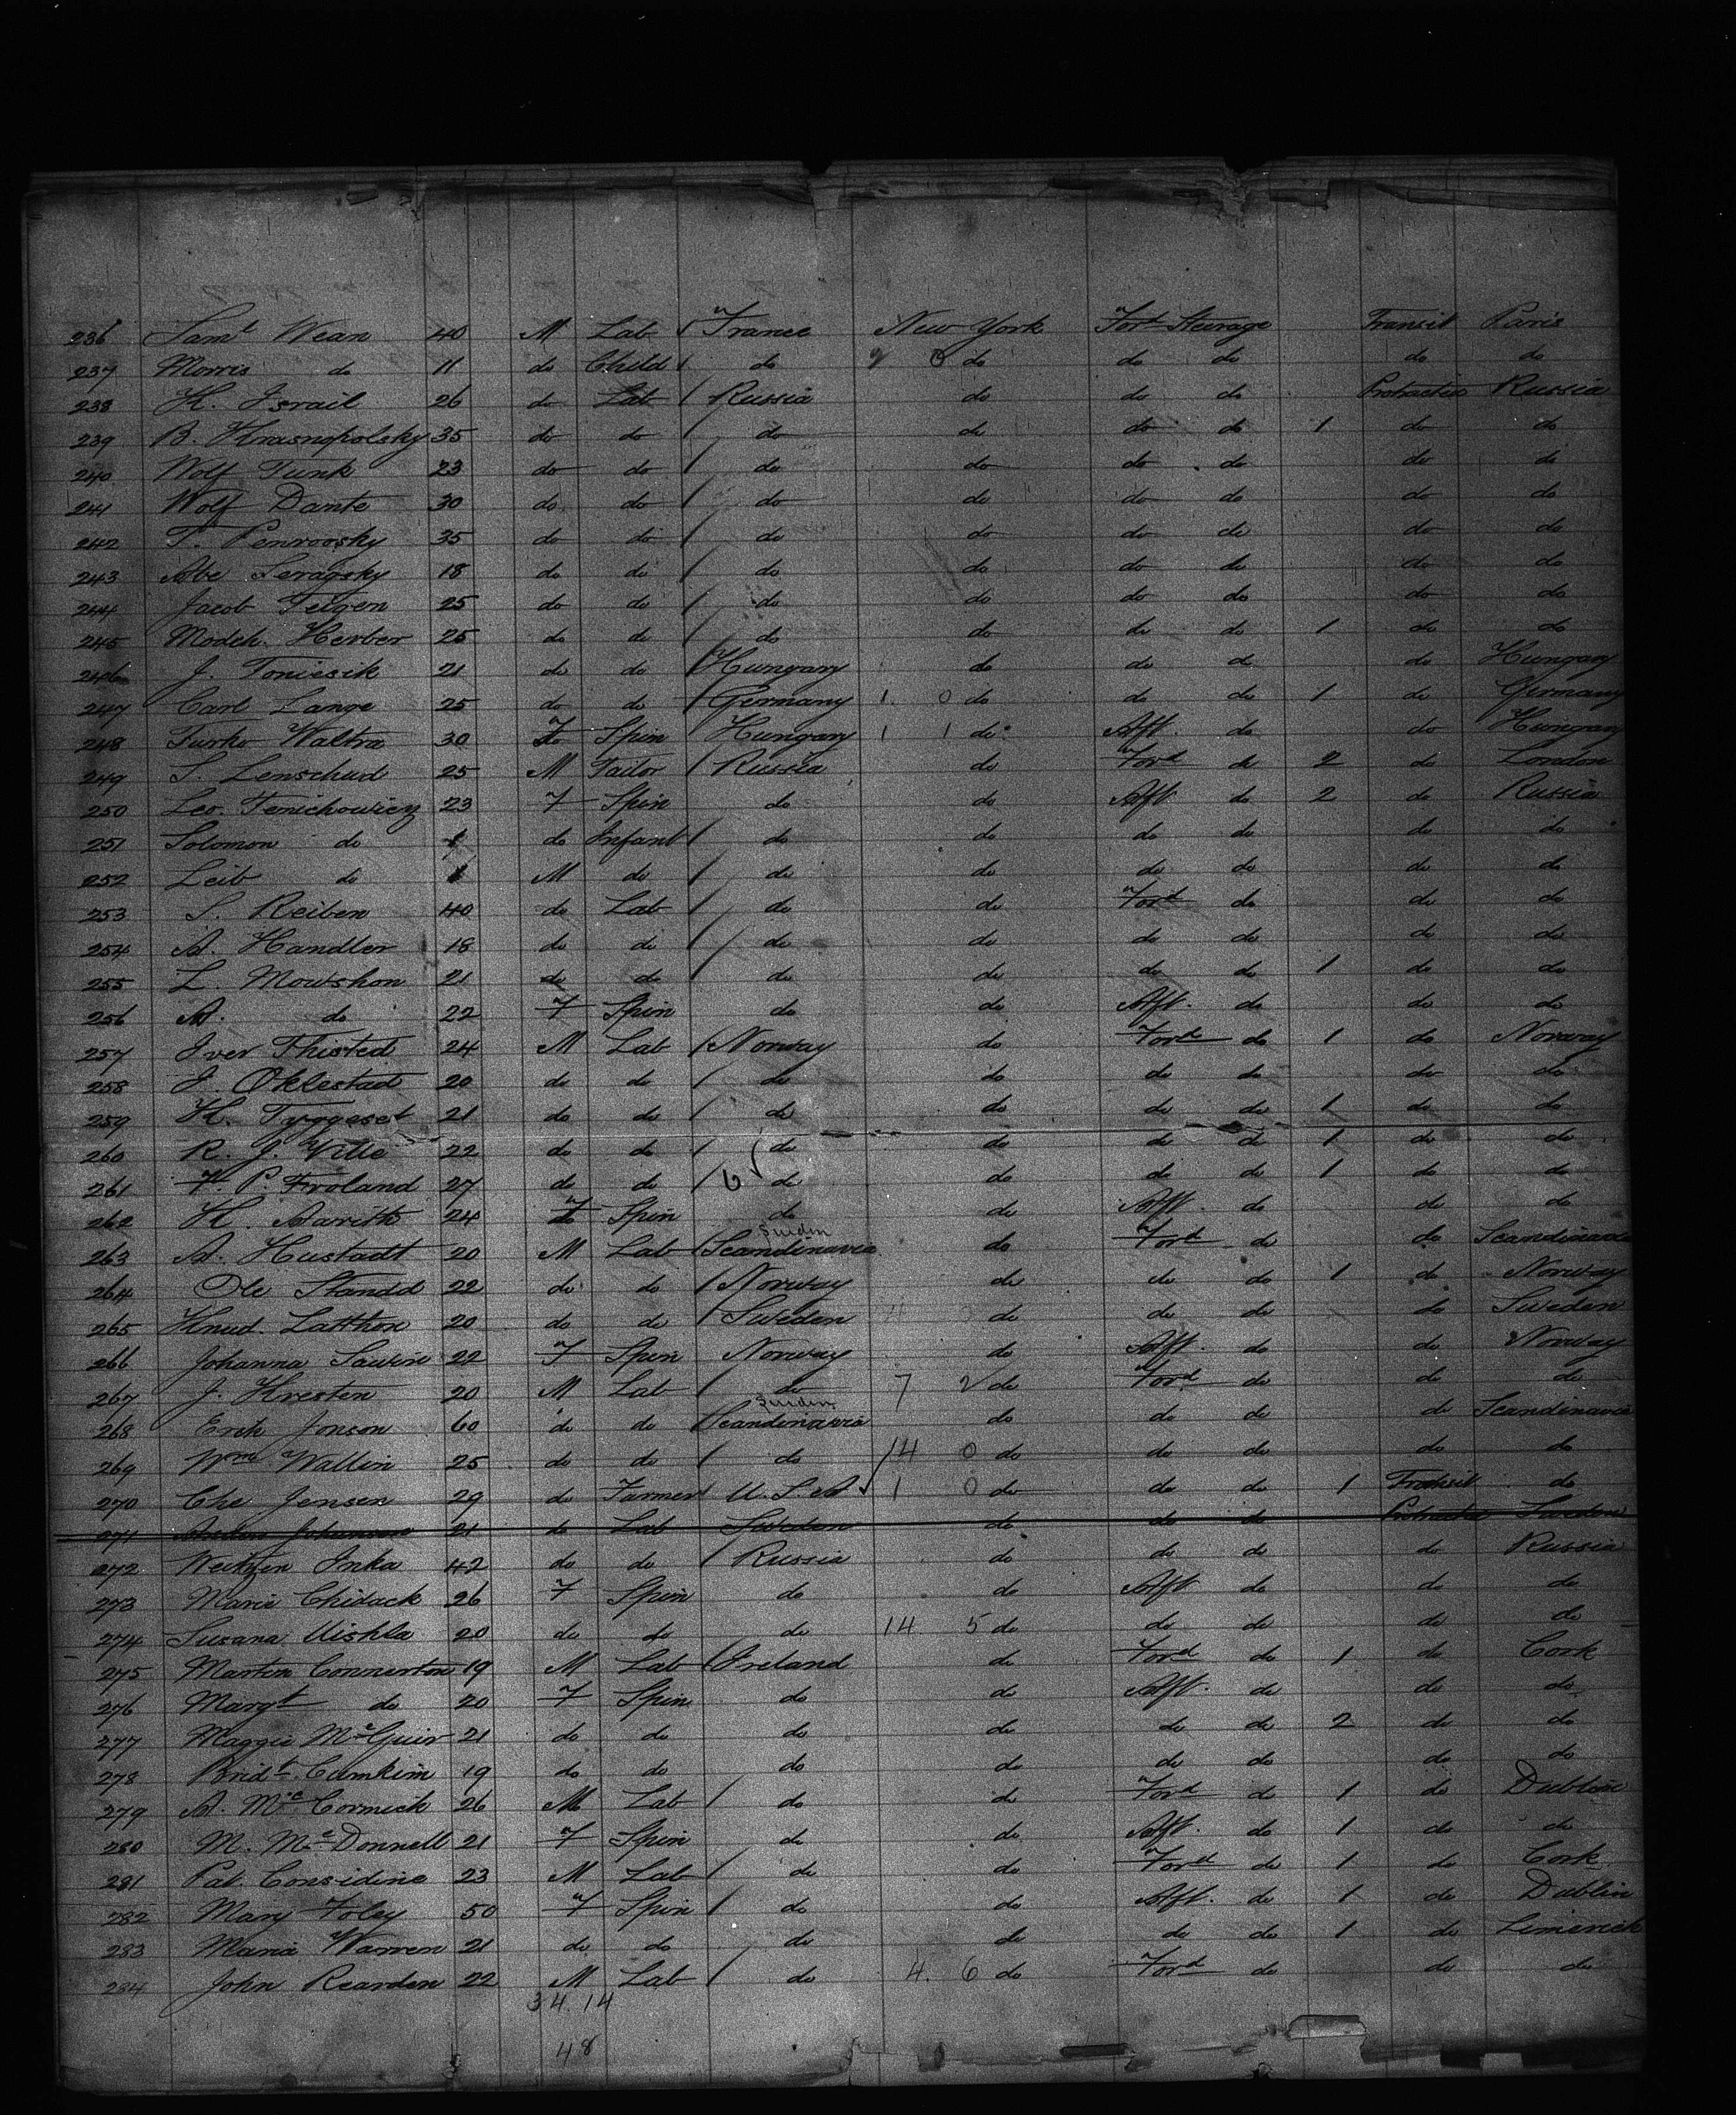 236 Saml Wean 40 M Lab France New York Ford Steerage Transit Paris
237 Morris do 11 do Child do 2 0 do do do do do
238 H. Israil 26 do Lab Russia do do do Protraction Russia
239 B. Krasnopolsky 35 do do do do do do 1 do do
240 Wolf Funk 23 do do do do do do do do
241 Wolf Dante 30 do do do do do do do do
242 T. Penroosky 35 do do do do do do do do
243 Abe Seragsky 18 do do do do do do do do
244 Jacob Feigen 25 do do do do do do do do
245 Modch. Herber 25 do do do do do do 1 do do
246 J. Toniesik 21 do do Hungary do do do do Hungary
247 Carl Lange 25 do do Germany 1 0 do do do 1 do Germany
248 Turko Waltra 30 F Spin Hungary 1 1 do Aft. do do Hungary
249 S. Lenschud 25 M Tailor Russia do Ford do 2 do London
250 Leo. Fenichowiez 23 F Spin do do Aft do 2 do Russia
251 Solomon do do Infant do do do do do do
252 Leib do M do do do do do do do
253 S. Reiben 40 do Lab do do Ford do do do
254 A. Handler 18 do do do do do do do do
255 L. Mowshon 21 do do do do do do 1 do do
256 A. do 22 F Spin do do Aft. do do do
257 Iver Thisted 24 M Lab Norway do Ford do 1 do Norway
258 J. Oklestad 20 do do do do do do do do
259 H. Tyggeset 21 do do do do do do 1 do do
260 R. J. Wille 22 do do do do do do 1 do do
261 P. Froland 27 do do 6 do do do do 1 do do
262 H. Aarith 24 F Spin do do Aft. do do do
Sweden
263 A. Hustadt 20 M Lab Scandinavia do Ford do do Scandinavia
264 Ole Standd 22 do do Norway do do do 1 do Norway
265 Knud. Latthon 20 do do Sweden do do do do Sweden
266 Johanna Saurin 22 F Spin Norway do Aft. do do Norway
267 J. Kresten 20 M Lab do 7 2 do Ford do do do
Sweden
268 Erck Jonson 60 do do Scandinavia do do do do Scandinavia
269 Wm Wallin 25 do do do 14 0 do do do do do
270 Che Jensen 29 do Farmer U.S.A 1 0 do do do 1 Transit do
271 Johanson 21 do Lab Sweden do do do Protraction Sweden
272 Weitzen Inka 42 do do Russia do do do do Russia
273 Marie Chidack 26 F Spin do do Aft do do do
274 Susana Uishla 20 do do do 14 5 do do do do do
275 Martin Connerton 19 M Lab Ireland do Ford do 1 do Cork
276 Margt do 20 F Spin do do Aft. do do do
277 Maggie McGuir 21 do do do do do do 2 do do
278 Bridt Cumkim 19 do do do do do do do do
279 A. McCormick 26 M Lab do do Ford do 1 do Dublin
280 M. McDonnell 21 F Spin do do Aft. do 1 do do
281 Pat. Considine 23 M Lab do do Ford do 1 do Cork
282 Mary Foley 50 F Spin do do Aft. do 1 do Dublin
283 Maria Warren 21 do do do do do do 1 do Limerick
284 John Rearden 22 M Lab do 4. 6 do Ford do do do
34. 14
48